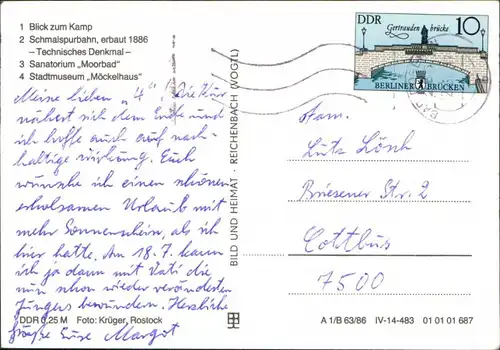 1 Blick zum Kamp
2 Schmalspurbahn, erbaut 1886
– Technisches Denkmal –
3 Sanatorium „Moorbad“
4 Stadtmuseum „Möckelhaus“
Meine lieben „4“! Die Kur
nähert sich dem Ende und
ich hoffe auch auf nach-
haltige Wirkung. Euch
wünsche ich einen schönen
erholsamen Urlaub mit
mehr Sonnenschein, als ich
hier hatte. Am 18.7. kann
ich ja dann mit Vati die
nun schon wieder veränderten
Jüngers bewundern. Herzliche
Grüße Eure Margot
DDR 0,25 M Foto: Krüger, Rostock
BILD UND HEIMAT · REICHENBACH (VOGTL)
DDR Gertraudenbrücke 10
BERLINER BRÜCKEN
Fam.
Lutz Lönh
Briesener Str. 2
Cottbus
7500
A 1/B 63/86 IV-14-483 01 01 01 687